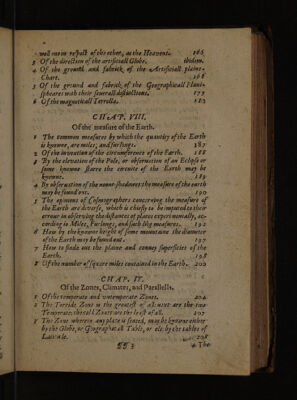 well move in respect of the other, as the Heavens. 165
3 Of the direction of the artificiall Globe. ibidem.
4 Of the ground and fabrick of the Artificiall plaine-
Chart. 168
5 Of the ground and fabrick of the Geographicall Plani-
spheare with their severall distinctions. 173
6 Of the magneticall Terrella. 183
CHAP. VIII.
Of the measure of the Earth.
1 The common measures by which the quantity of the Earth
is knowne, are miles, and furlongs. 187
2 Of the invention of the circumference of the Earth. 188
3 By the elevation of the Pole, or observation of an Eclipse or
some knowne starre the circuite of the Earth may be
knowne. 189
4 By observation of the noone-shadowes the measure of the earth
may be found out. 190
5 The opinions of Cosmographers concerning the measure of
the Earth are diverse, which is chiefly to be imputed to their
errour in observing the distances of places experimentally, ac-
cording to Miles, Furlongs, and such like measures. 192
6 How by the knowne height of some mountaine the diameter
of the Earth may be found out. 197
7 How to finde out the plaine and convex superficies of the
Earth. 198
8 Of the number of square miles contained in the Earth. 200
CHAP. IX.
Of the Zones, Climates, and Parallells.
1 Of the temperate and untemperate Zones. 204
2 The Torride Zone is the greatest of all: next are the two
Temperate: the cold Zones are the least of all. 207
3 The Zone wherein any place is seated, may be knowne either
by the Globe, or Geographicall Table, or els: by the tables of
Latitude. 208
4 The